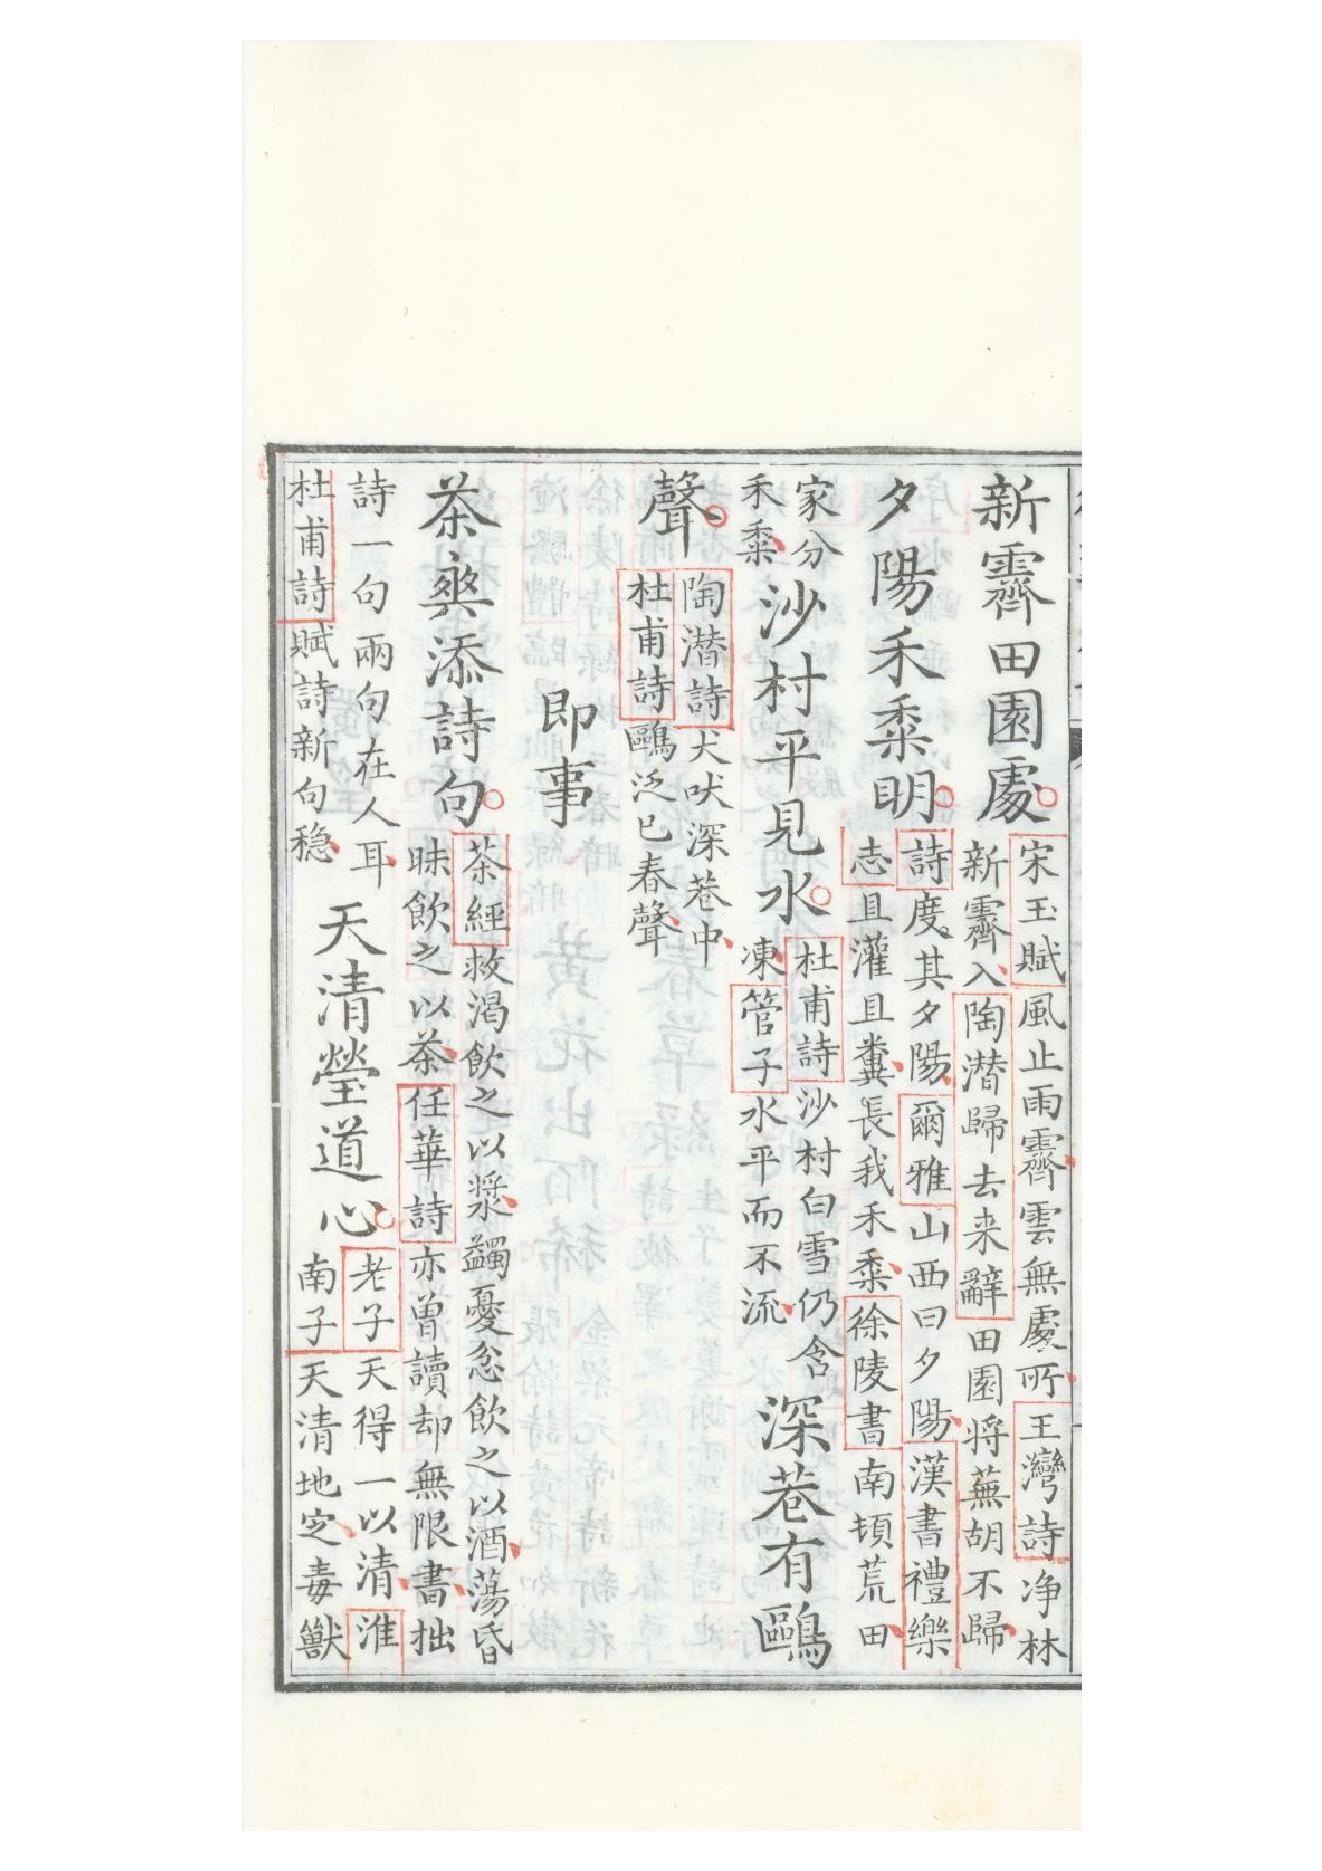 新霽田園處
宋玉賦風止雨霽雲無處所王灣詩净林
新霽入陶潛歸去来辭田園將蕪胡不歸
夕陽禾黍明
詩度其夕陽爾雅山西曰夕陽漢書禮樂
志且灌且糞長我禾黍徐陵書南頓荒田
家分
禾黍
沙村平見水
杜甫詩沙村白雪仍含
凍管子水平而不流
深巷有鷗
聲
陶潛詩犬吠深巷中
杜甫詩鷗泛已春聲
即事
茶爽添詩句
茶經救渴飲之以漿蠲憂忿飲之以酒蕩昏
昧飲之以茶任華詩亦曾讀却無限書拙
詩一句兩句在人耳
杜甫詩賦詩新句穩
天清瑩道心
老子天得一以清淮
南子天清地定毒獸